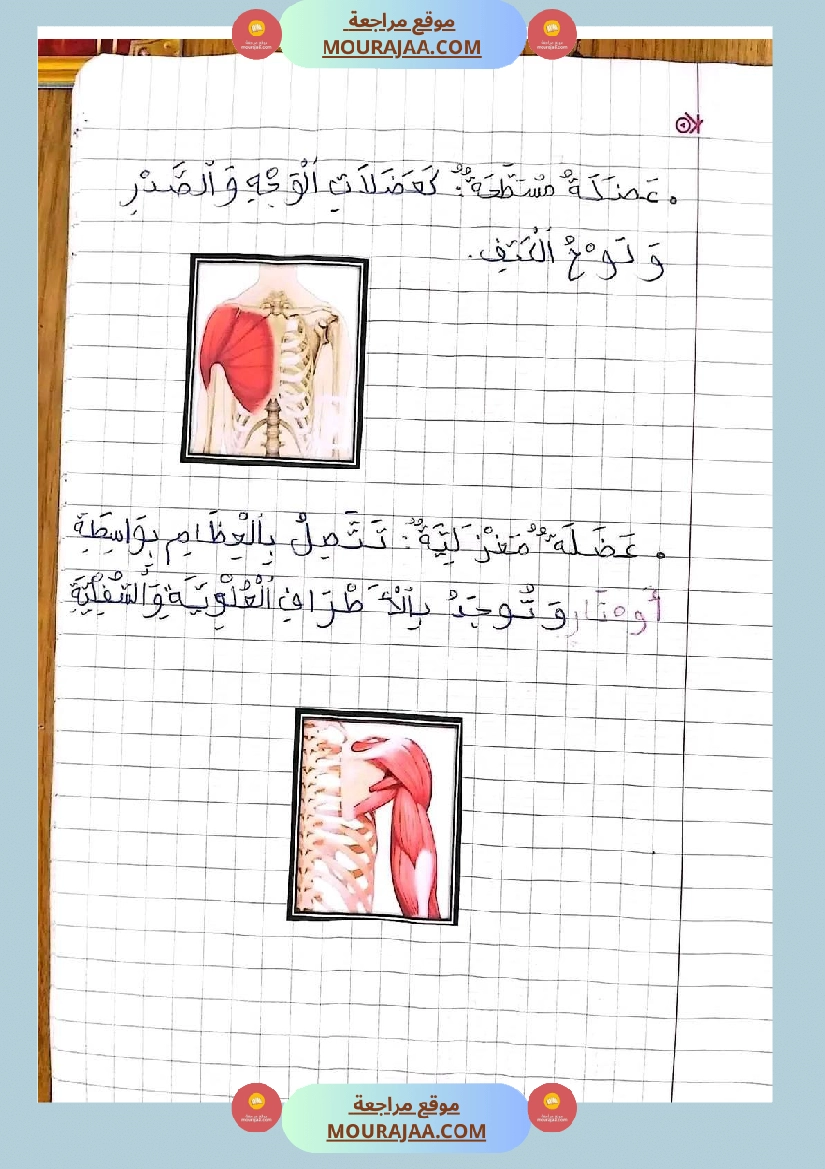 موقع مراجعة
MOURAJAA.COM
. عَضَلَةٌ مُسَطَّحَةٌ : كَعَضَلَاتِ ٱلْوَجْهِ وَ ٱلصَّدْرِ
وَ لَوْحُ ٱلْكَتِفِ.
. عَضَلَةٌ مَغْزَلِيَّةٌ : تَتَّصِلُ بِٱلْعِظَامِ بِوَاسِطَةِ
أَوْتَارٍ وَ تُوجَدُ بِٱلْأَطْرَافِ ٱلْعُلْوِيَّةِ وَٱلسُّفْلِيَّةِ
موقع مراجعة
MOURAJAA.COM